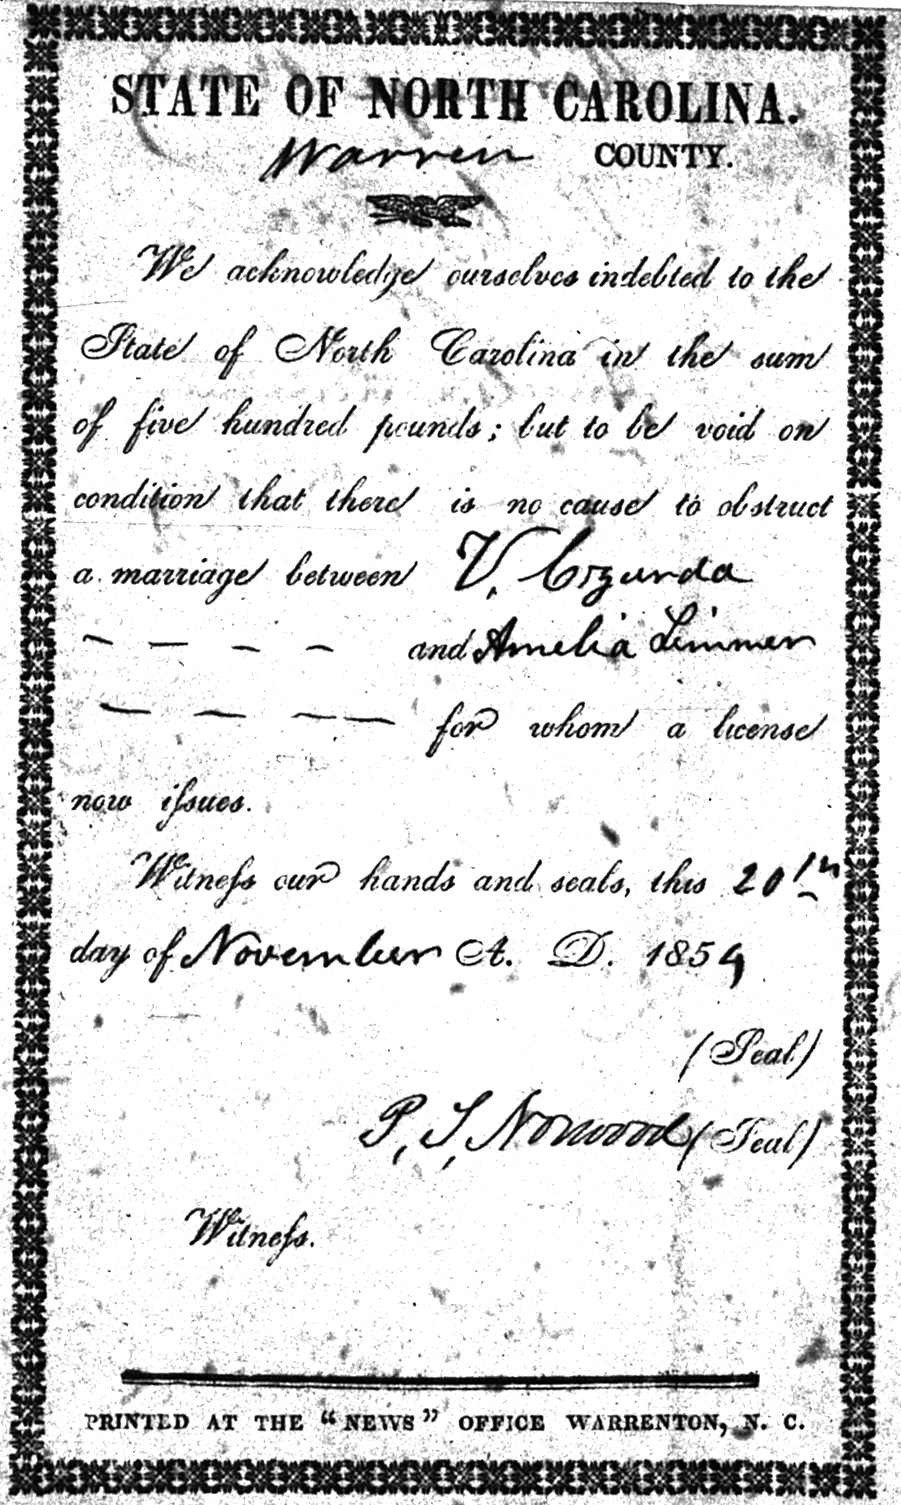 STATE OF NORTH CAROLINA.
Warren COUNTY.
We acknowledge ourselves indebted to the
State of North Carolina in the sum
of five hundred pounds; but to be void on
condition that there is no cause to obstruct
a marriage between V.
— — — — and Amelia Limmer
— — — — for whom a license
now issues.
Witness our hands and seals, this 20th
day of November A. D. 1854
(Seal)
P. S, Norwood (Seal)
Witness.
PRINTED AT THE "NEWS" OFFICE WARRENTON, N. C.